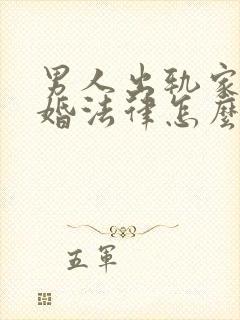 男人出轨家
婚法律怎麼
五軍